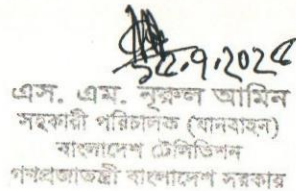 এস. এম. নূরুল আমিন
সহকারী পরিচালক (যানবাহন)
বাংলাদেশ টেলিভিশন
গণপ্রজাতন্ত্রী বাংলাদেশ সরকার